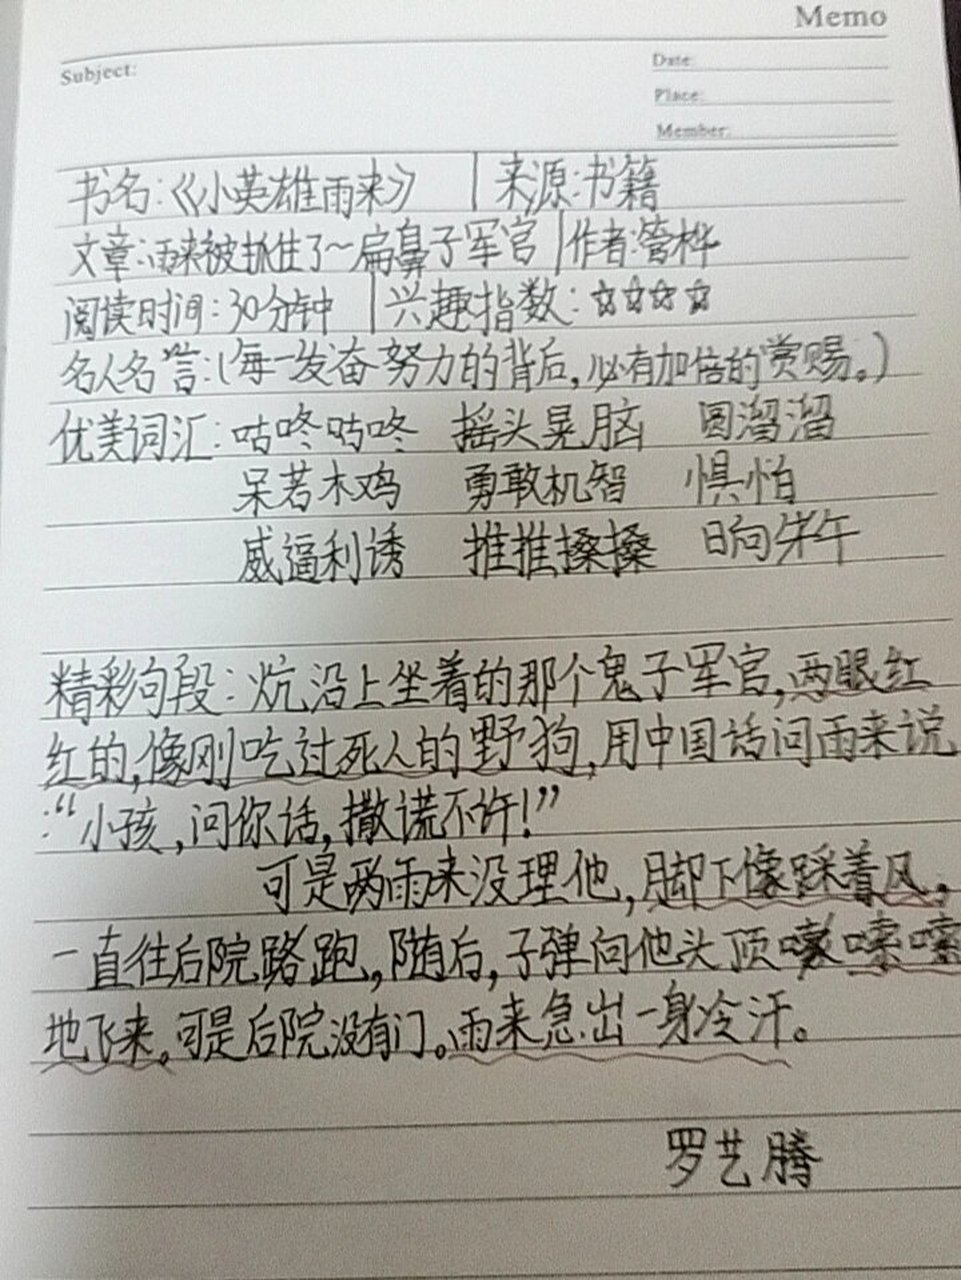 Memo
Subject:
Date:
Place:
Member:
书名:《小英雄雨来》 | 来源:书籍
文章:雨来被抓住了~扁鼻子军官 | 作者:管桦
阅读时间:30分钟 | 兴趣指数:☆☆☆☆
名人名言:(每一发奋努力的背后,必有加倍的赏赐。)
优美词汇:咕咚咕咚 摇头晃脑 圆溜溜
呆若木鸡 勇敢机智 惧怕
威逼利诱 推推搡搡 日向午
精彩句段:炕沿上坐着的那个鬼子军官,两眼红
红的,像刚吃过死人的野狗,用中国话问雨来说
:“小孩,问你话,撒谎不许!”
可是两雨来没理他,脚下像踩着风,
一直往后院路跑,随后,子弹向他头顶嗖嗖嗖
地飞来。可是后院没有门。雨来急出一身冷汗。
罗艺腾